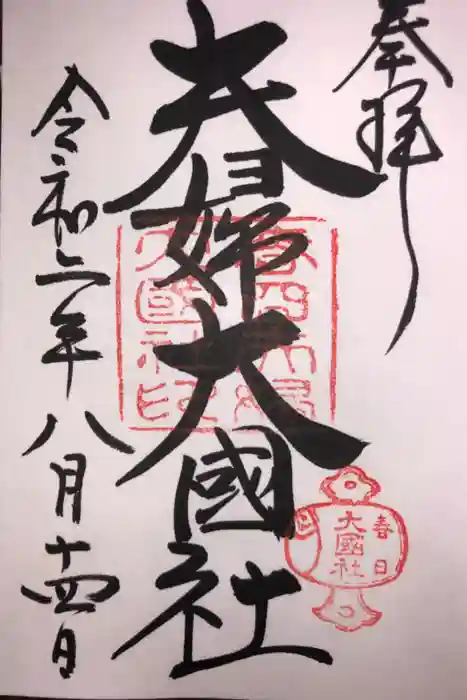 奉拝
夫婦大國社
令和二年八月十四日
春日
大國社
春日夫婦
大國社印